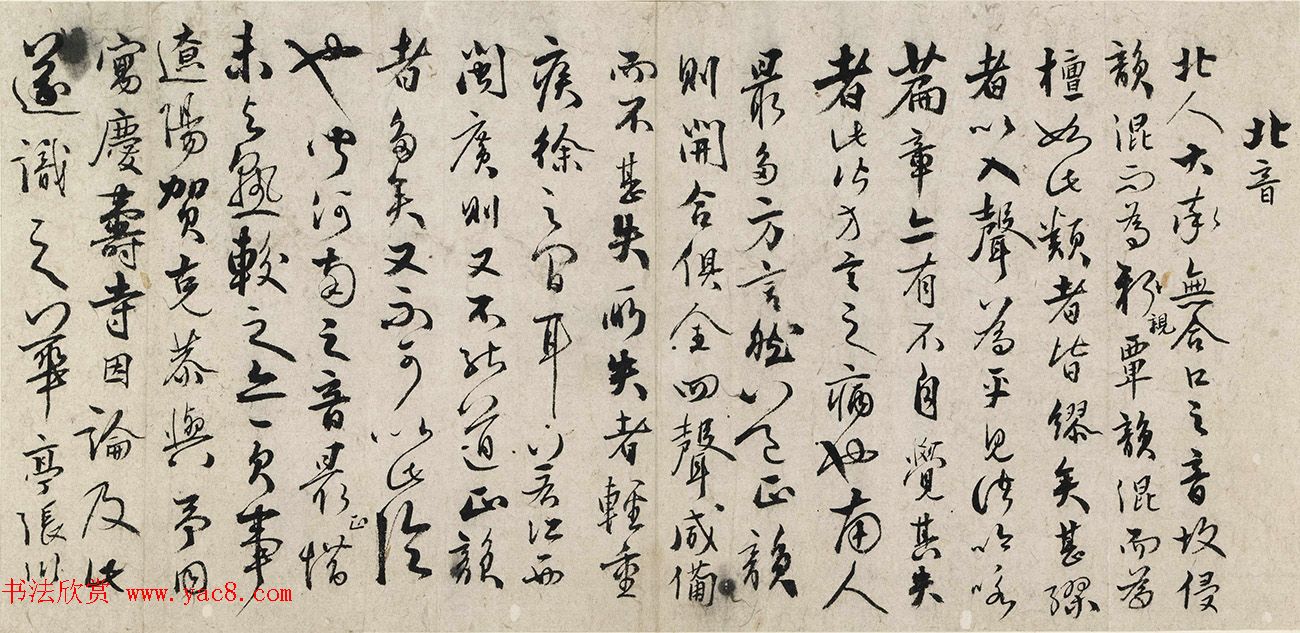 北音
北人大率無合口之音故侵
韻混而為新親覃韻混而為
檀如此類者皆繆矣甚繆
者以入聲為平見諸吟咏
篇章亦有不自覺其失
者此皆方言之病也南人
最多方言然以之正韻
則開合俱全四聲咸備
而不甚失所失者輕重
疾徐之間耳若江西
閩廣則又不能道正韻
者多矣又不可以此論
也聞河南之音最正惜
未與熟較之亦一欠事
遼陽賀克恭與予同
寓慶壽寺因論及此
遂識之華亭張
书法欣赏 www.yac8.com